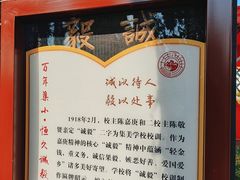 毅誠
诚以待人
毅以处事
百年集小·恒久诚毅
1918年2月，校主陈嘉庚和二校主陈敬
贤亲定“诚毅”二字为集美学校校训。作为
嘉庚精神的核心“诚毅”精神中蕴涵“轻金
钱、重义务、诚信果毅、嫉恶好善、爱国爱
乡”诸多美好寄望。学校将“诚毅”校训制